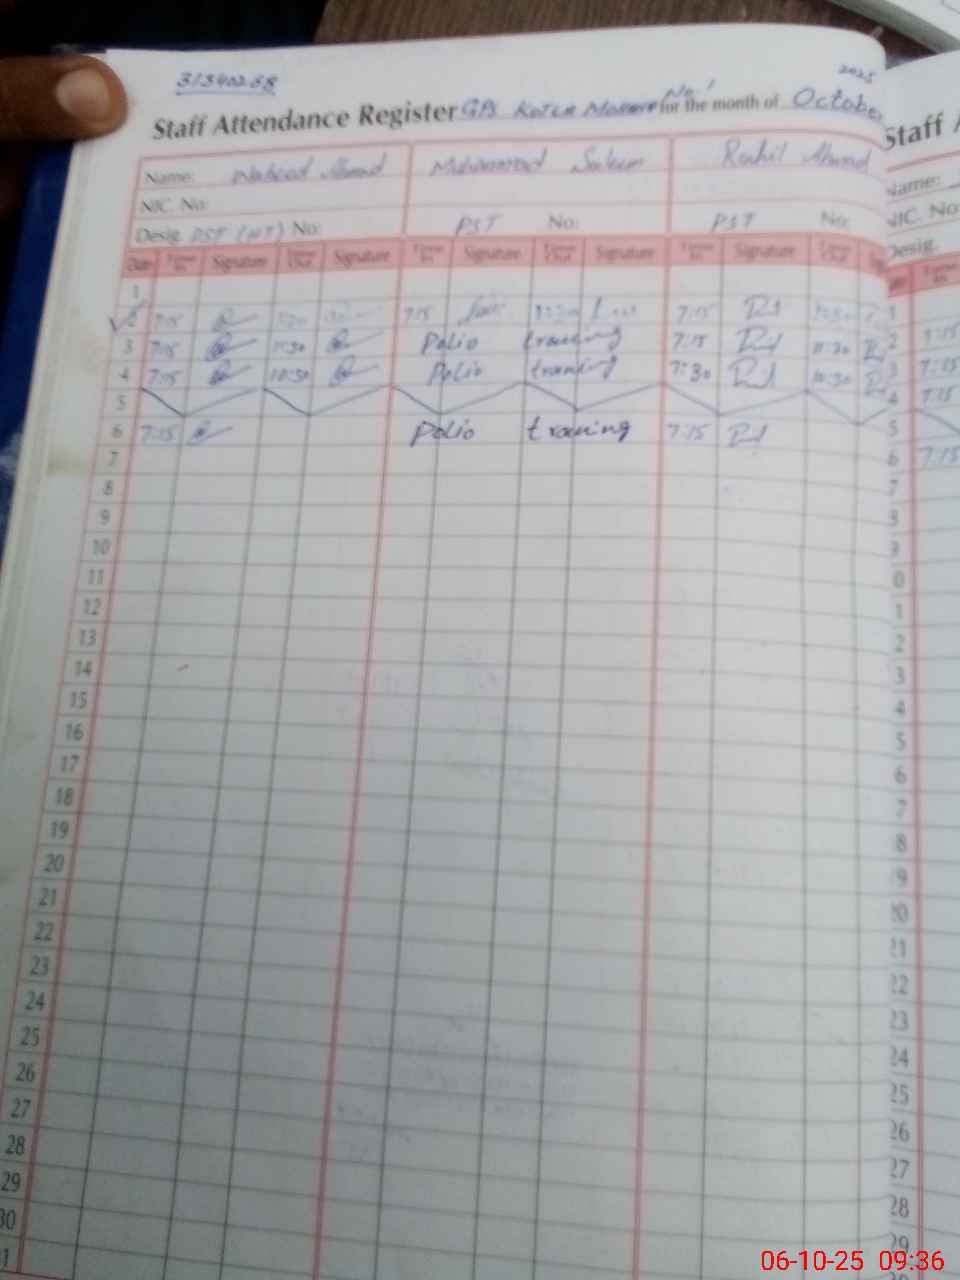 31340268
2025
Staff Attendance Register GPS for the month of October
No. 1
Name: Waheed Ahmad Muhammad Saleem Rahil Ahmad
NIC. No:
Desig. PST (NT) No: PST No: PST No:
Date Time In Signature Time Out Signature Time In Signature Time Out Signature Time In Signature Time Out
1
2 7:15 7:15 7:15
3 7:15 11:30 Polio training 7:15 11:30
4 7:15 10:30 Polio training 7:30 10:30
5
6 7:15 Polio training 7:15
7
8
9
10
11
12
13
14
15
16
17
18
19
20
21
22
23
24
25
26
27
28
29
30
Staff
Name:
NIC. No
Desig.
Time In
1
2 7:15
3 7:15
4 7:15
5
6 7:15
7
8
9
0
1
2
3
4
5
6
7
8
9
20
21
22
23
24
25
26
27
28
29
06-10-25 09:36